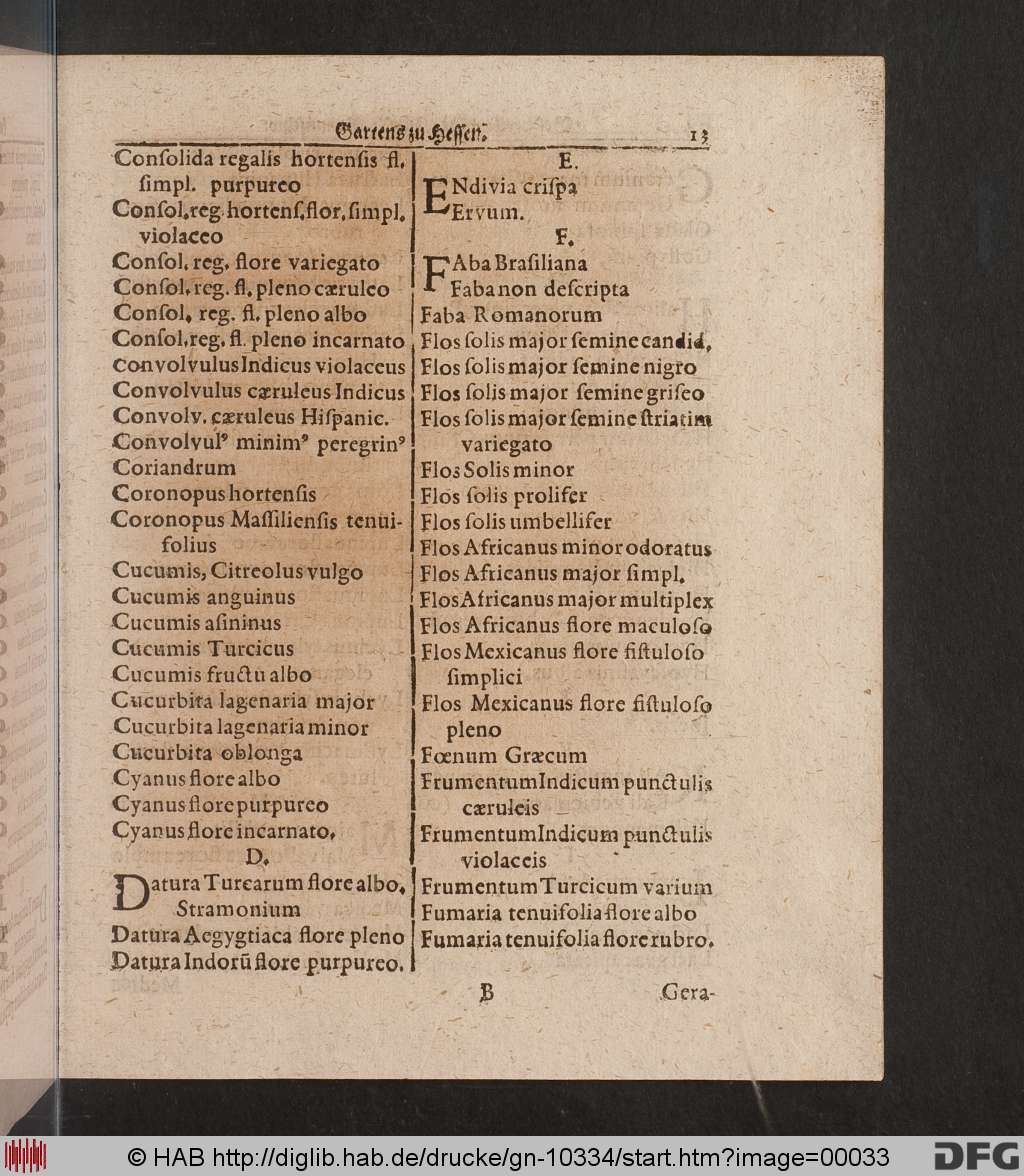 Gartens zu Hessen. 13
Conſolida regalis hortenſis fl.
ſimpl. purpureo
Conſol.reg.hortenſ.flor.ſimpl.
violaceo
Conſol. reg. flore variegato
Conſol.reg. fl. pleno cæruleo
Conſol. reg. fl. pleno albo
Conſol.reg. fl. pleno incarnato
ConvolvulusIndicus violaceus
Convolvulus cæruleus Indicus
Convolv. cæruleus Hiſpanic.
Convolvulꝰ minimꝰ peregrinꝰ
Coriandrum
Coronopus hortenſis
Coronopus Maſſilienſis tenui-
folius
Cucumis, Citreolus vulgo
Cucumis anguinus
Cucumis aſininus
Cucumis Turcicus
Cucumis fructu albo
Cucurbita lagenaria major
Cucurbita lagenaria minor
Cucurbita oblonga
Cyanus flore albo
Cyanus flore purpureo
Cyanus flore incarnato.
D.
Datura Turcarum flore albo.
Stramonium
Datura Aegygtiaca flore pleno
Datura Indorū flore purpureo.
E.
ENdivia criſpa
Ervum.
F.
FAba Braſiliana
Faba non deſcripta
Faba Romanorum
Flos ſolis major ſemine candid.
Flos ſolis major ſemine nigro
Flos ſolis major ſemine griſeo
Flos ſolis major ſemine ſtriatim
variegato
Flos Solis minor
Flos ſolis prolifer
Flos ſolis umbellifer
Flos Africanus minor odoratus
Flos Africanus major ſimpl.
Flos Africanus major multiplex
Flos Africanus flore maculoſo
Flos Mexicanus flore fiſtuloſo
ſimplici
Flos Mexicanus flore fiſtuloſo
pleno
Fœnum Græcum
FrumentumIndicum punctulis
cæruleis
FrumentumIndicum punctulis
violaceis
Frumentum Turcicum varium
Fumaria tenuifolia flore albo
Fumaria tenuifolia flore rubro.
B Gera-
© HAB http://diglib.hab.de/drucke/gn-10334/start.htm?image=00033
DFG